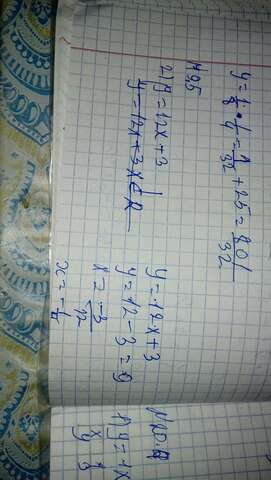 y = 1/8 · 1/4 = 1/32 + 2.5 = 801/32
2) y = 12x + 3
y = 12x + 3 x ∈ R
y = 12x + 3
y = 12 - 3 = 9
x = -3/12
x = -1/4
1) y = -1x
x
y